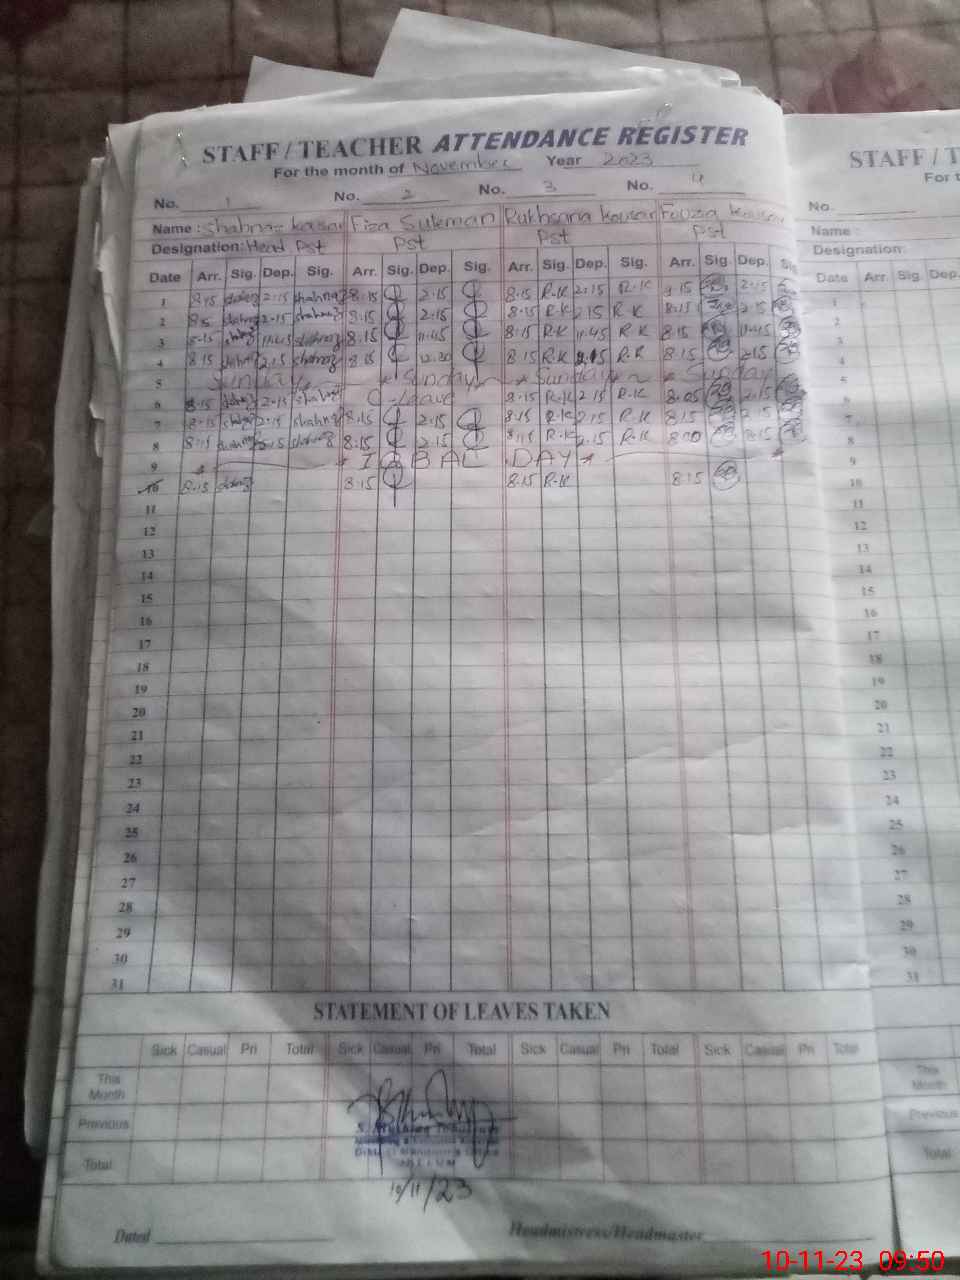 STAFF / TEACHER ATTENDANCE REGISTER
For the month of November Year 2023
No. 1 No. 2 No. 3 No. 4
Name : Shahnaz kasar Fiza Suleman Rukhsana kousar Fouzia kousar
Designation: Head Pst Pst Pst Pst
Date Arr. Sig. Dep. Sig. Arr. Sig. Dep. Sig. Arr. Sig. Dep. Sig. Arr. Sig. Dep. Sig
1 8.15 2.15 shahnaz 8.15 2.15 8.15 R.K 2.15 R.K 8.15 2.15
2 shahnaz 2.15 shahnaz 8.15 2.15 8.15 R.K 2.15 R.K 8.15 2.15
3 8.15 11.45 shahnaz 8.15 11.45 8.15 R.K 11.45 R.K 8.15 11.45
4 8.15 shahnaz 2.15 shahnaz 8.15 12.30 8.15 R.K 2.15 R.K 8.15 2.15
5 Sunday Sunday Sunday Sunday
6 8.15 2.15 C-leave 8.15 R.K 2.15 R.K 8.05 2.15
7 8.15 2.15 shahnaz 8.15 2.15 8.15 R.K 2.15 R.K 8.15 2.15
8 8.15 shahnaz 2.15 8.15 2.15 8.15 R.K 2.15 R.K 8.10
9 IQBAL DAY
10 8.15 8.15 8.15 R.K 8.15
11
12
13
14
15
16
17
18
19
20
21
22
23
24
25
26
27
28
29
30
31
STATEMENT OF LEAVES TAKEN
Sick Casual Pri Total Sick Casual Pri Total Sick Casual Pri Total Sick Casual Pri Total
This
Month
Previous
Total
JHELUM
10/11/23
Dated Headmistress/Headmaster
STAFF / T
For t
No.
Name :
Designation:
Date Arr. Sig. Dep.
1
2
3
4
5
6
7
8
9
10
11
12
13
14
15
16
17
18
19
20
21
22
23
24
25
26
27
28
29
30
31
This
Month
Previous
Total
10-11-23 09:50